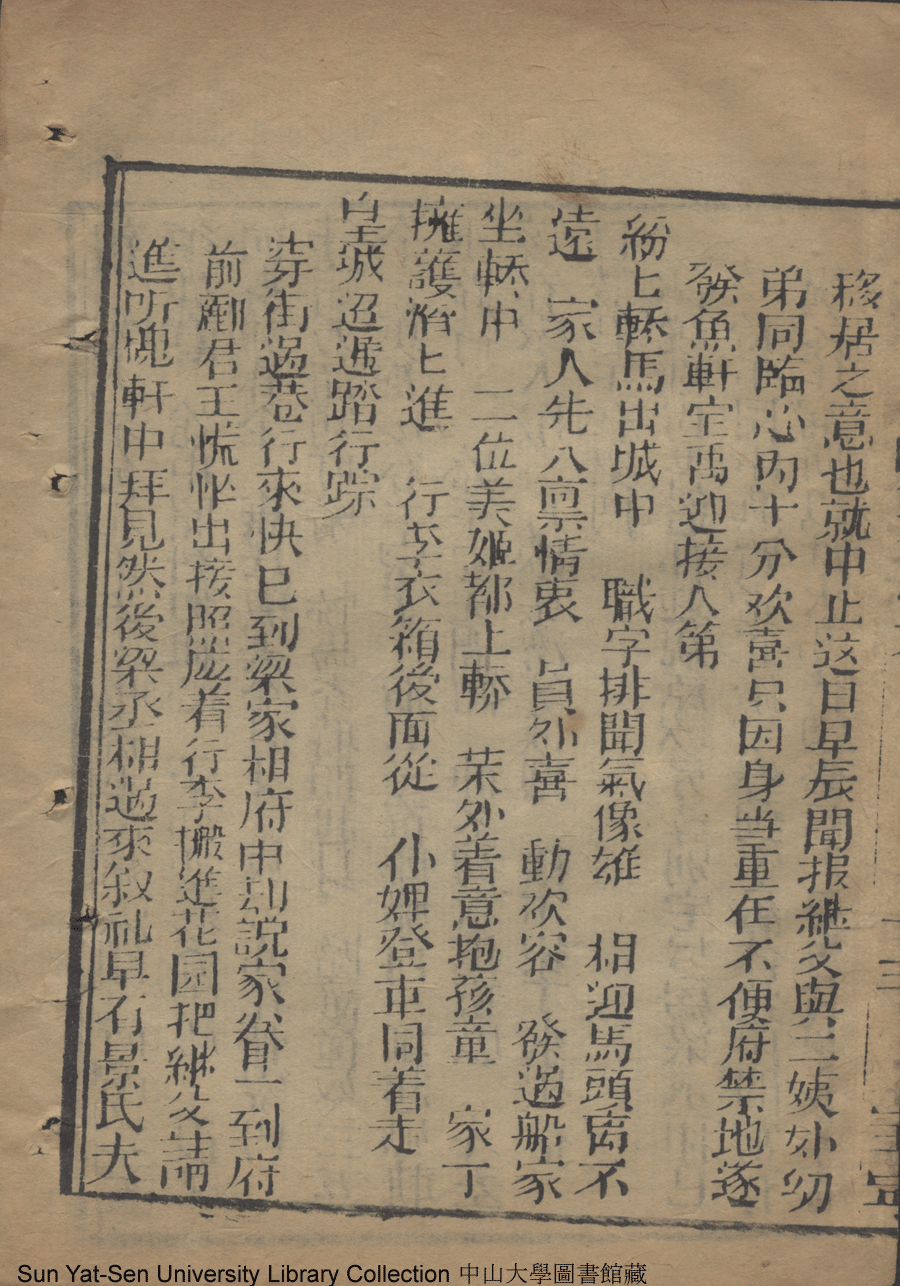 移居之意也就中止这日早辰聞报継父與二姨娚幼
弟同臨心内十分欢喜只因身当重任不便府禁地遂
發魚軒宝馬迎接入第
紛上轎馬出城中 職字排開氣像雄 相迎馬頭离不
遠 家人先入禀情衷 員外喜 動欢容 發過船家
坐轎中 二位美姬都上轎 茉外着意抱孩童 家丁
擁護滔上進 行李衣箱後面從 仆婢登車同着走
皇城迢遞踏行踪
穿街過巷行來快已到梁家相府中却説家眷一到府
前酈君王慌忙出接照應着行李搬進花园把継父請
進听槐軒中拜見然後梁丞相過來叙礼早有景氏夫
十三
Sun Yat-Sen University Library Collection 中山大學圖書館藏